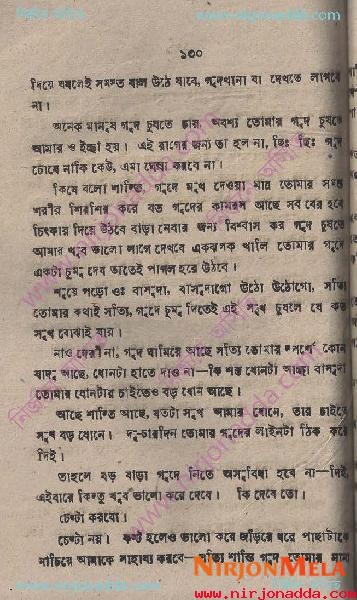 ১৩০
দিয়ে ঘষলেই সমস্ত বাল উঠে যাবে, গুদখানা যা দেখতে লাগবে
না।
অনেক মানুষ গুদ চুষতে চায় অবশ্য তোমার গুদ চুষতে
আমার ও ইচ্ছা হয়। এই রাগের জন্য তা হল না, ছিঃ ছিঃ গুদ
চোষে নাকি কেউ, এমা ঘেন্না করবে না।
কিযে বলো শান্তি, গুদে মুখ দেওয়া মাত্র তোমার সমস্ত
শরীর শিরশির করে যত গুদের কামরস আছে সব বের হবে
চিৎকার দিয়ে উঠবে বাঁড়া নেবার জন্য বিশ্বাস কর গুদ চুষতে
আমার খুব ভালো লাগে দেখবে একঝলক খালি তোমার গুদে
একটা চুমু দেব তাতেই পাগল হয়ে উঠবে।
শুয়ে পড়ো ওঃ বাসুদা, বাসুদাগো উঠো উঠোগো, সত্যি
তোমার কথাই সত্যি, গুদে চুমু দিতেই এই সুখ চুষলে যে কত
সুখ বোঝাই যায়।
নাও দেরী না, গুদ ঘামিয়ে আছে সত্যি তোমার স্পর্শে কোন
যাদু আছে, ধোনটা হাতে দাও না—কি শক্ত ধোনটা আচ্ছা বাসুদা
তোমার ধোনটার চাইতেও বড় ধোন আছে।
আছে শান্তি আছে, যতটা সুখ আমার ধোনে, তার চাইতে
সুখ বড় ধোনে। দু-চারদিন তোমার গুদের লাইনটা ঠিক করে
দিই।
তাহলে বড় বাড়া গুদে নিতে অসুবিধা হবে না—দিই,
এইবারে কিন্তু খুব ভালো করে দেবে। কি দেবে তো।
চেষ্টা করবো।
চেষ্টা নয়। কষ্ট হলেও ভালো করে জড়িয়ে ধরে পাছাটাকে
নাচিয়ে আমাকে সাহায্য করবে—সত্যি শান্তি গুদ তোমার
NirjonMela
www.nirjonadda.com